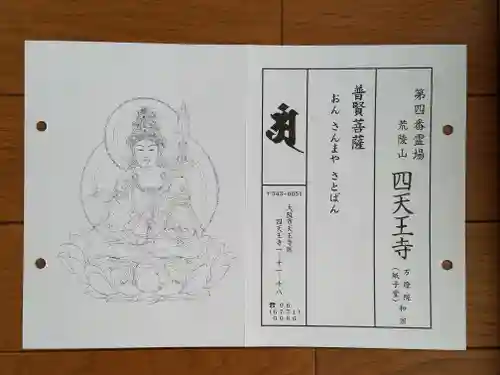 第四番霊場
荒陵山
四天王寺
万燈院和宗
(紙子堂)
普賢菩薩
おん さんまや さとばん
〒543-0051
大阪市天王寺区
四天王寺一ー十一ー十八
☎06
(6771)
0066